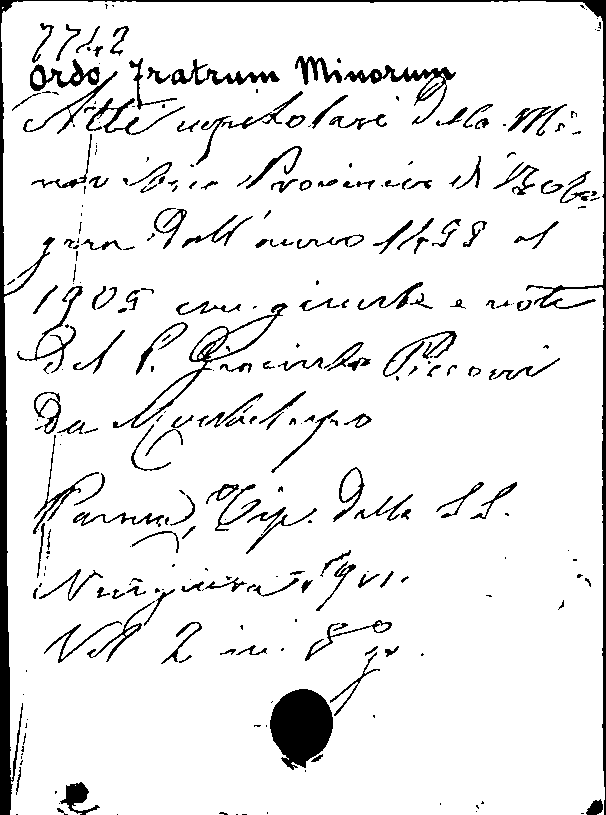 7742
Ordo Fratrum Minorum
Atti capitolari della Mi-
noritica Provincia di Bolo-
gna dall'anno 1458 al
1905 con giunte e note
del P. Giacinto Picconi
da Cantalupo
Parma, Tip. della SS.
Nunziata, 1901.
Vol 2 in 8º gr.